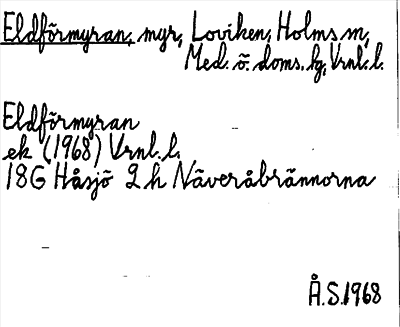 Eldförmyran, myr, Loviken, Holms sn,
Med. ö. doms. hg, Vrnl. l.
Eldförmyran
ek (1968) Vrnl. l.
18G Håsjö 2h Näveråbrännorna
Å.S. 1968